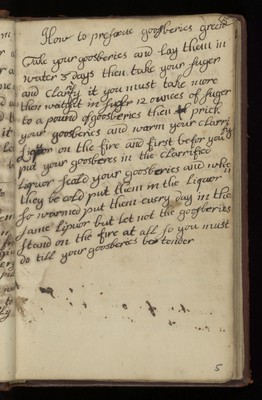 How to preserue goosberies green
Take your goosberies and lay them in
water 3 days then take your suger
and clarify it you must take more
then weight in suger 12 ounces of suger
to a pound of goosberies then prick
your goosberies and warm your clarri
liquor on the fire and first befor you
put your goosberes in the clarrified
liquor scald your goosberies and whe
they be cold put them in the liquor
so warmed put them euery day in the
same liquor but let not the goosberies
stand on the fire at all so you must
do till your goosberies be tender
5